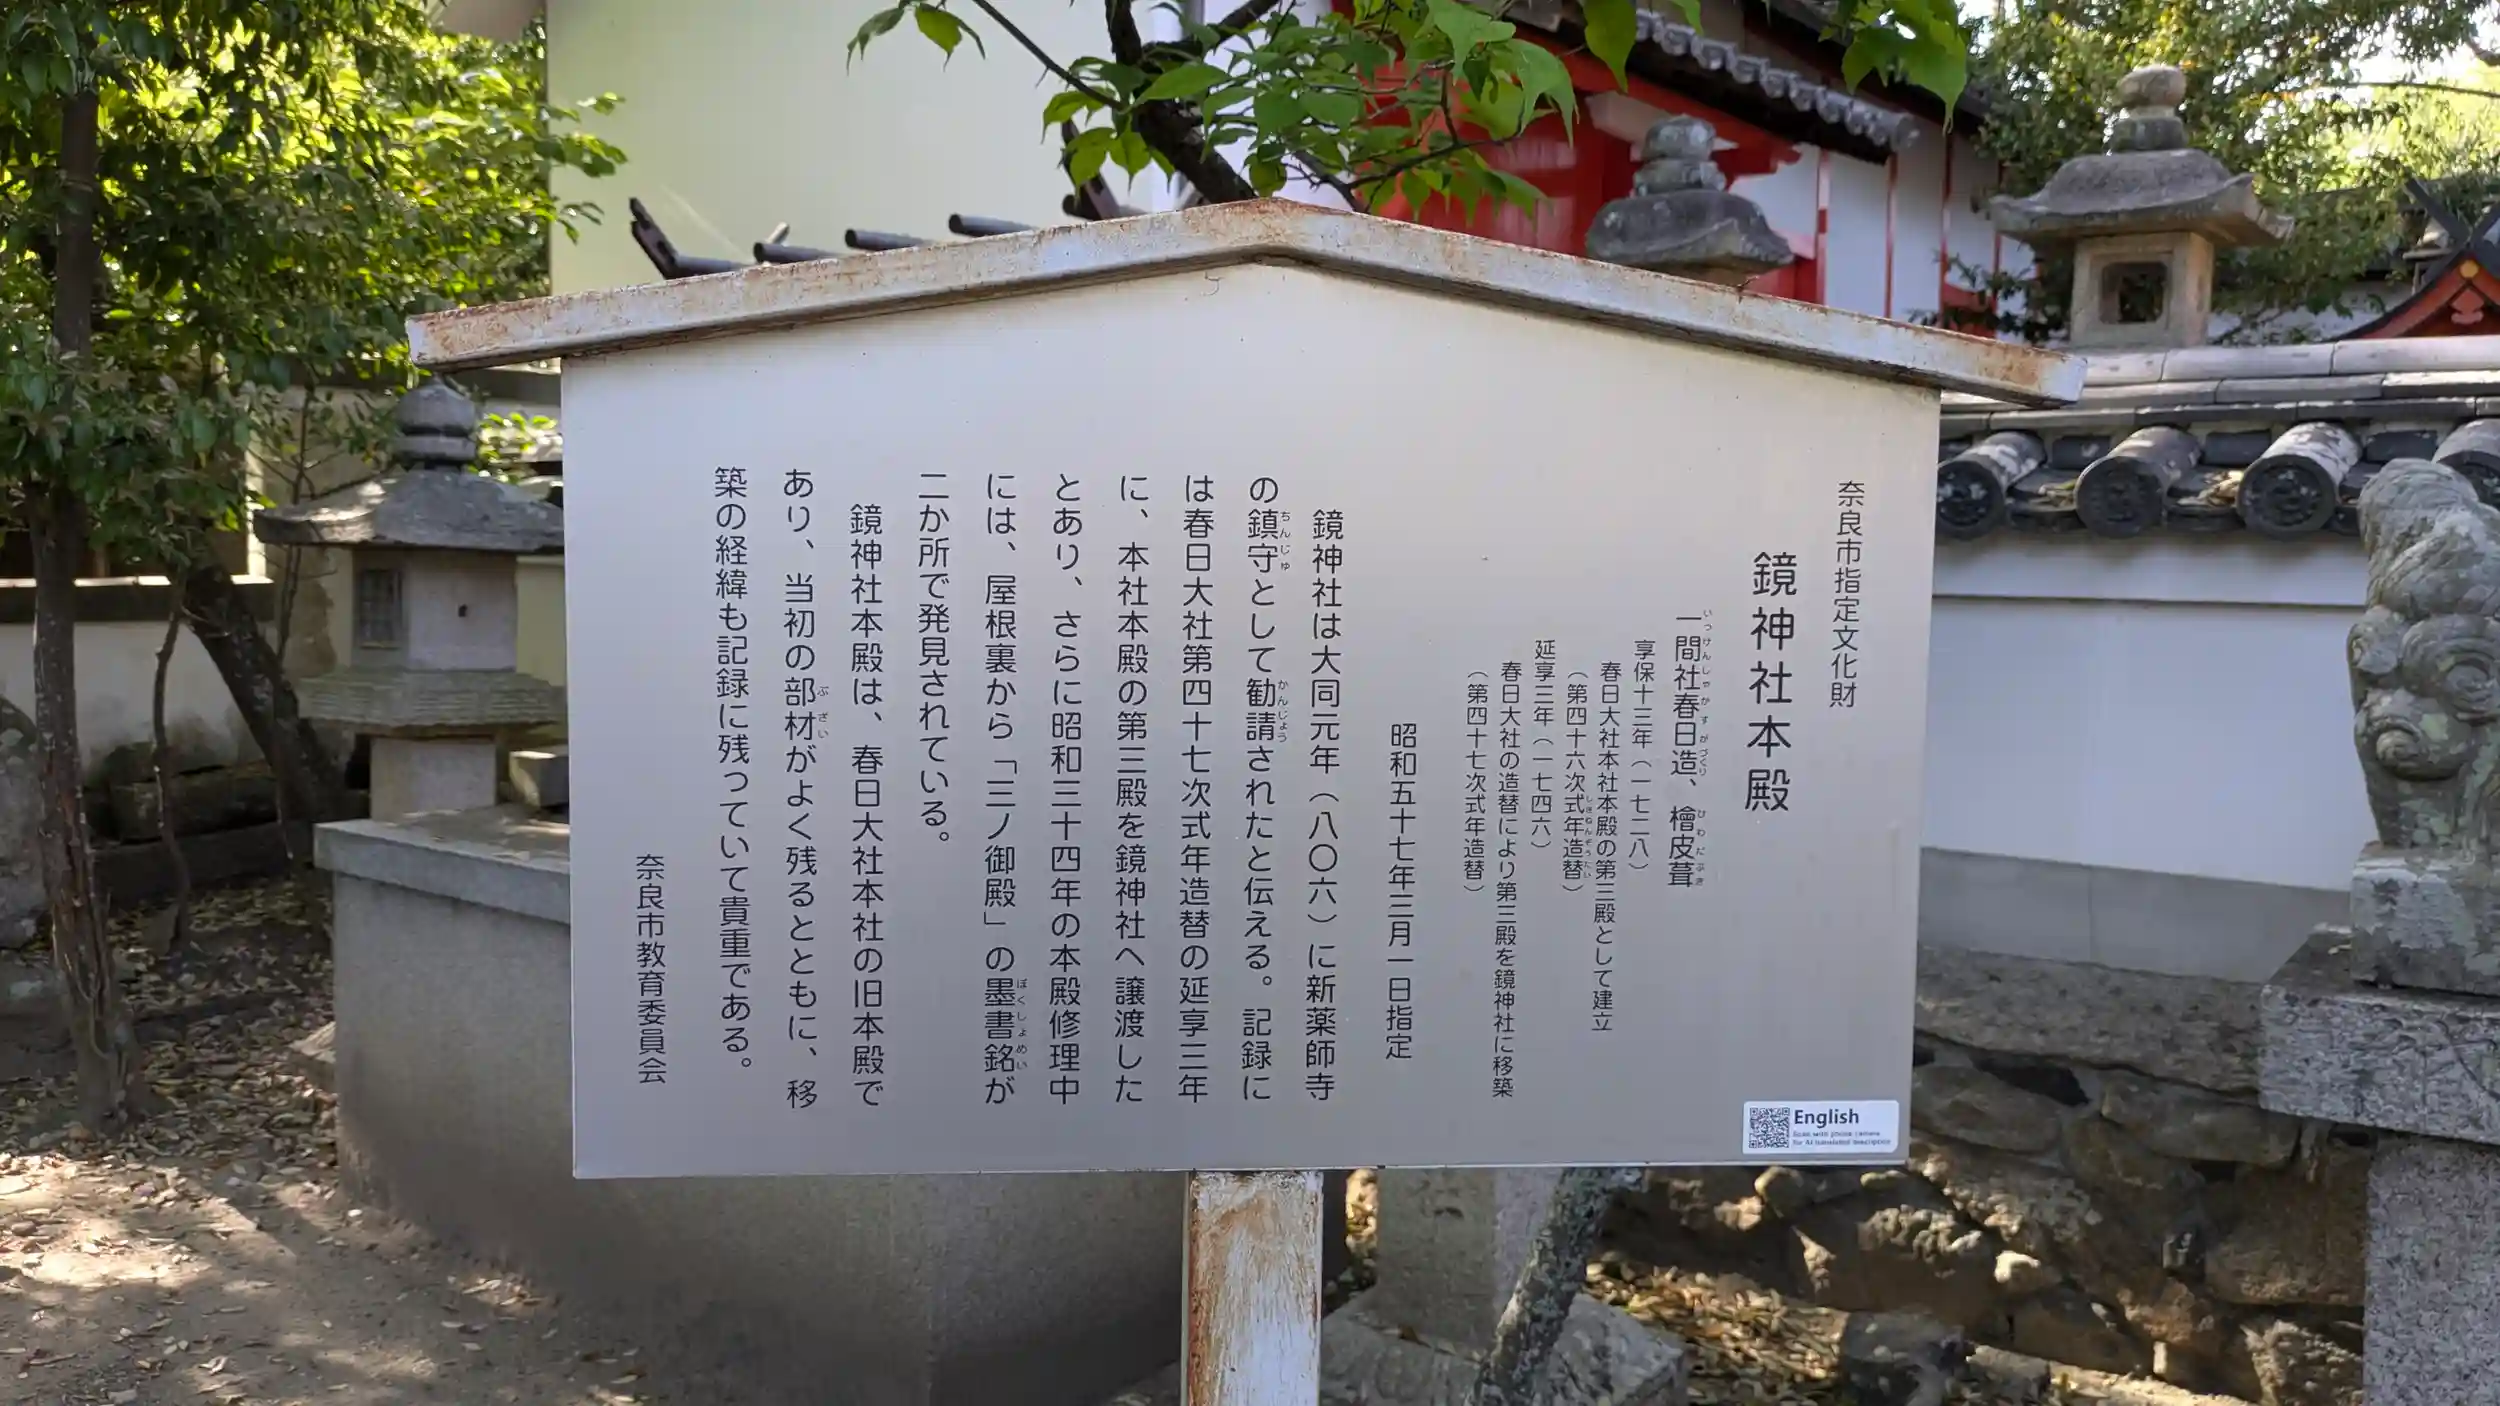 奈良市指定文化財
鏡神社本殿
一間社春日造、檜皮葺
いっけんしゃかすがづくり ひわだぶき
享保十三年（一七二八）
春日大社本社本殿の第三殿として建立
（第四十六次式年造替）
しきねんぞうたい
延享三年（一七四六）
春日大社の造替により第三殿を鏡神社に移築
（第四十七次式年造替）
昭和五十七年三月一日指定
鏡神社は大同元年（八〇六）に新薬師寺
の鎮守として勧請されたと伝える。記録に
ちんじゅ かんじょう
は春日大社第四十七次式年造替の延享三年
に、本社本殿の第三殿を鏡神社へ譲渡した
とあり、さらに昭和三十四年の本殿修理中
には、屋根裏から「三ノ御殿」の墨書銘が
ぼくしょめい
二か所で発見されている。
鏡神社本殿は、春日大社本社の旧本殿で
あり、当初の部材がよく残るとともに、移
ぶざい
築の経緯も記録に残っていて貴重である。
奈良市教育委員会
English
Scan with phone camera
for AI translated description